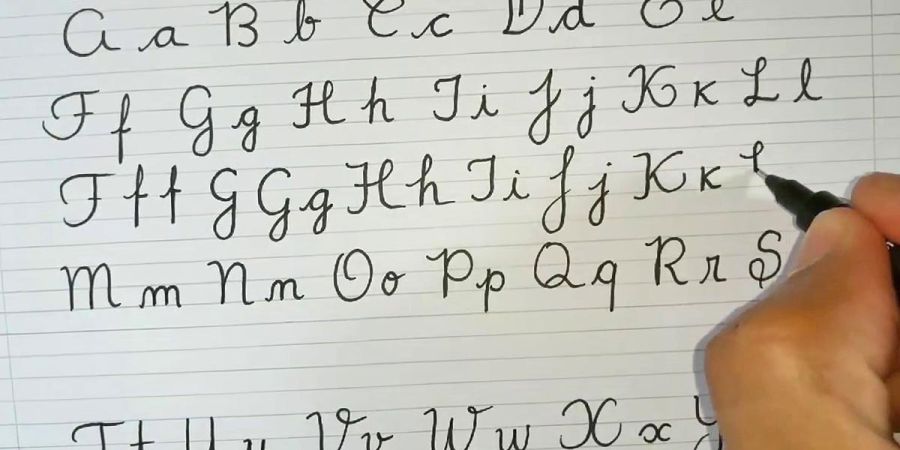 G a B b C c D d E e
F f G g H h I i J j K k L l
F f f G G g H h I i J j K k
M m N n O o P p Q q R r S
T t U u V v W w X x Y